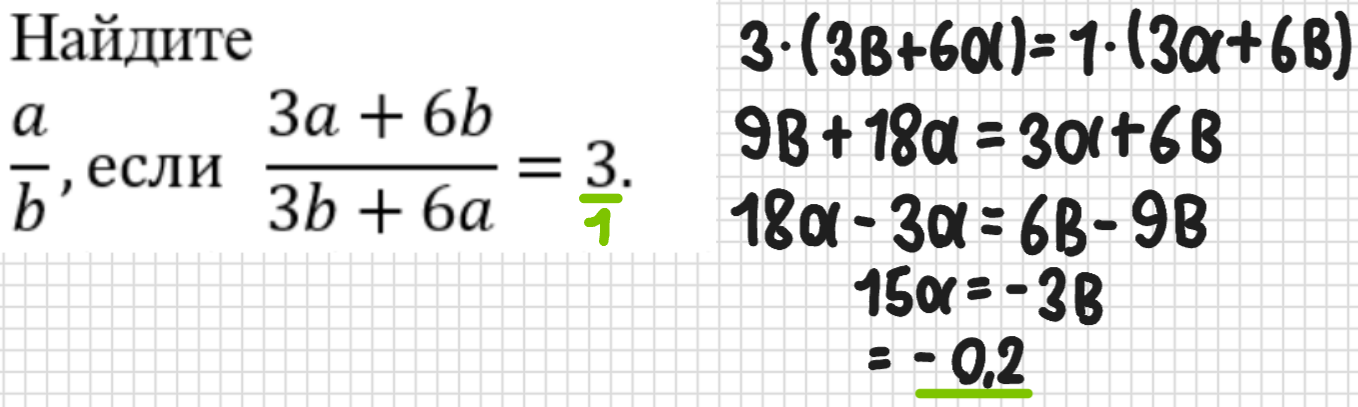 Найдите
a/b, если (3a + 6b)/(3b + 6a) = 3.
1
3·(3в+6а)=1·(3а+6в)
9в+18а=3а+6в
18а-3а=6в-9в
15а=-3в
=-0,2